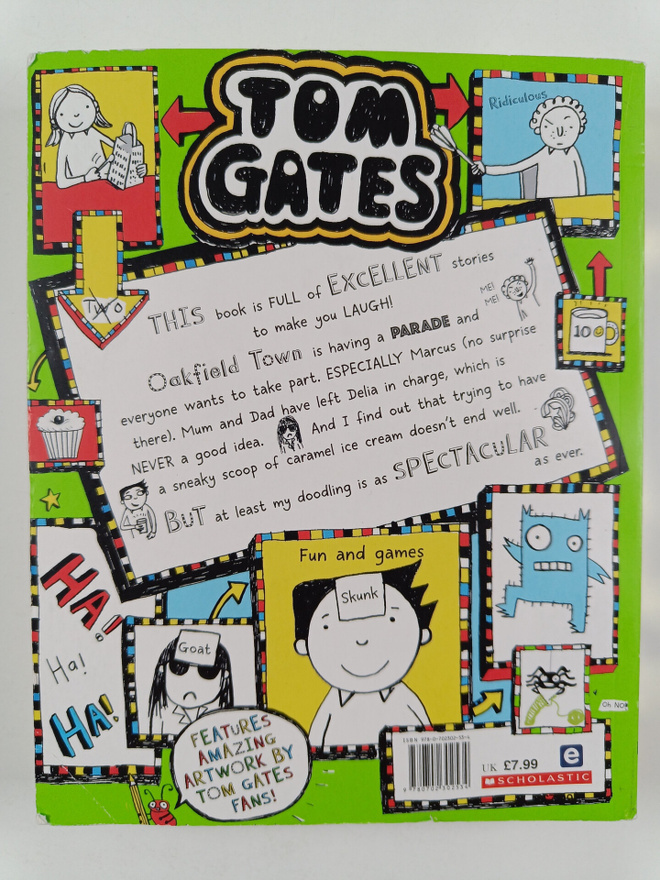 TOM
GATES
Ridiculous
TWO
THIS book is FULL of EXCELLENT stories
to make you LAUGH!
ME!
ME!
Oakfield Town is having a PARADE and
everyone wants to take part. ESPECIALLY Marcus (no surprise
there). Mum and Dad have left Delia in charge, which is
NEVER a good idea. And I find out that trying to have
a sneaky scoop of caramel ice cream doesn't end well.
BUT at least my doodling is as SPECTACULAR
as ever.
100
HA!
Ha!
HA!
Fun and games
Skunk
Goat
FEATURES
AMAZING
ARTWORK BY
TOM GATES
FANS!
Oh NO
ISBN 978-0-702302-33-4
9780702302334
UK £7.99
e
SCHOLASTIC